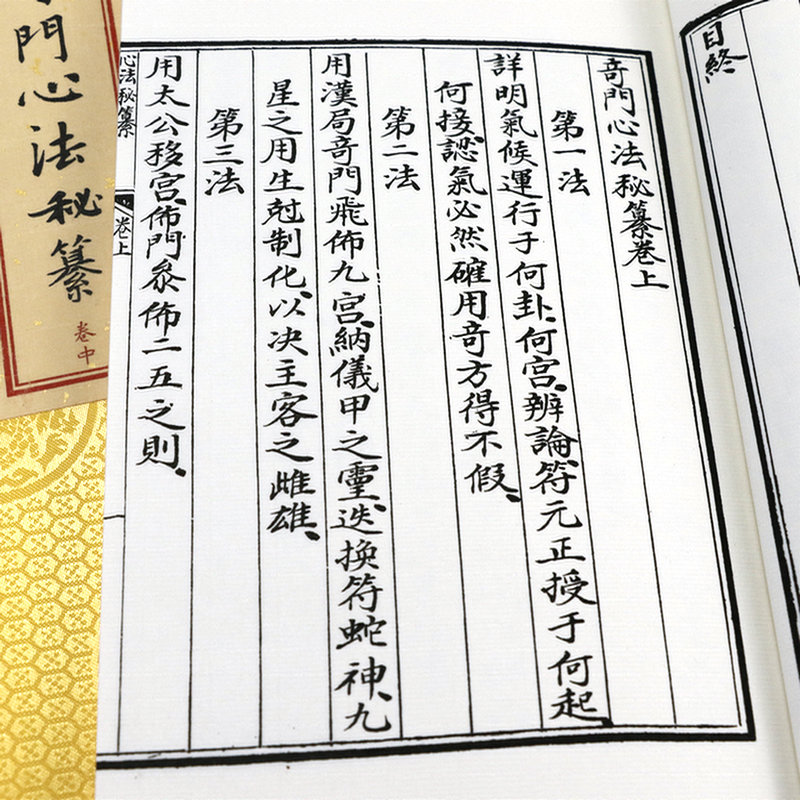 目終
奇門心法秘纂卷上
第一法
詳明氣候運行于何卦、何宮、辨論、符元正授于何起、
何接、認氣必然確用奇方得不假、
第二法
用漢局奇門飛佈九宮、納儀甲之靈、迭換符蛇神、九
星之用生尅制化、以決主客之雌雄、
第三法
用太公移宮、佈門叅佈二五之則、
心法秘纂
卷上
門心法秘纂
卷中